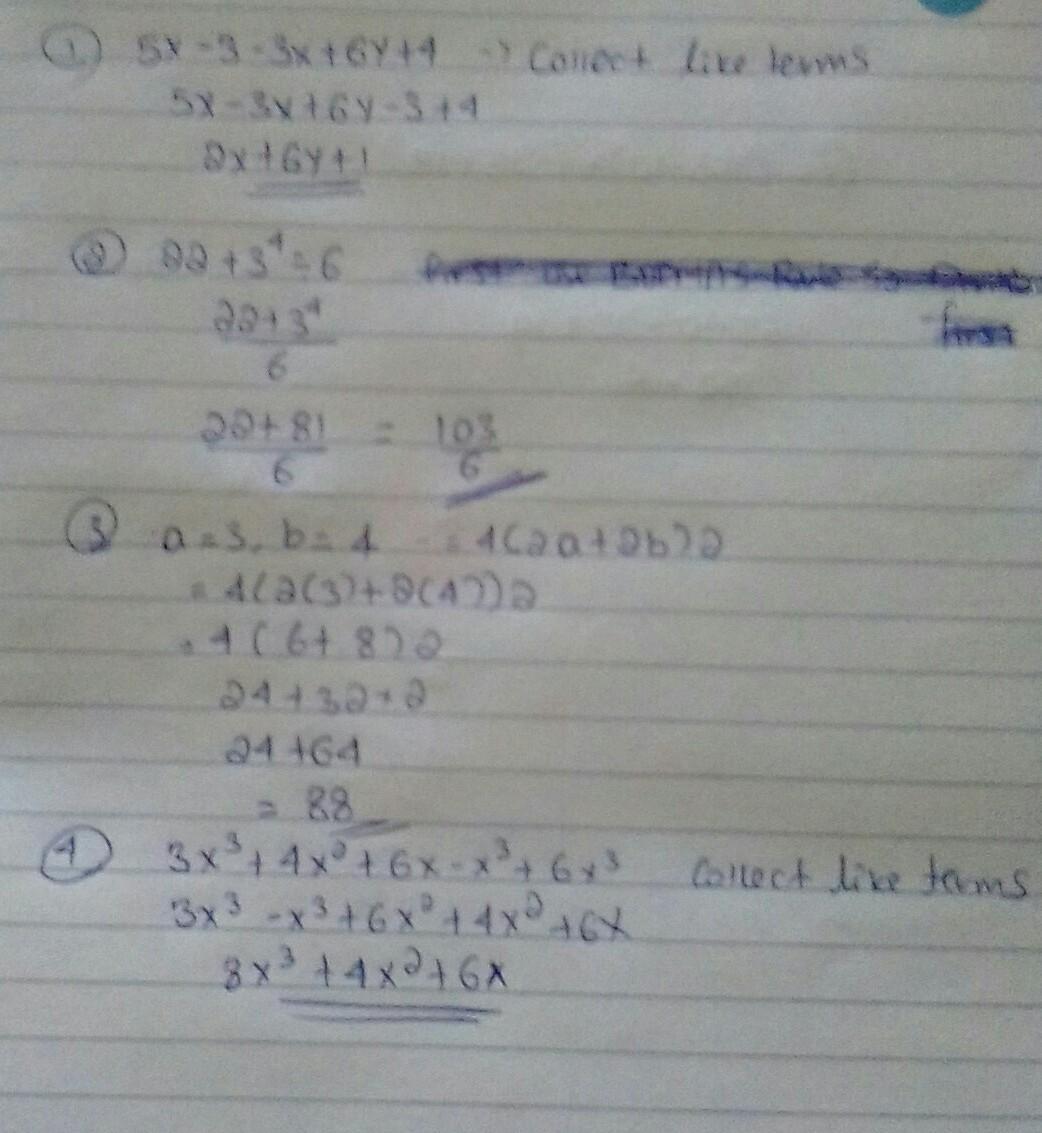 ① 5x-3-3x+6y+4 → Collect like terms
5x-3x+6y-3+4
2x+6y+1
② 22+3⁴÷6
22+3⁴
6
22+81 = 103
6 6
③ a=3, b=4 = 4(2a+2b)2
= 4(2(3)+2(4))2
= 4(6+8)2
24+32×2
24+64
= 88
④ 3x³+4x²+6x-x³+6x³ Collect like terms
3x³-x³+6x²+4x²+6x
8x³+4x²+6x